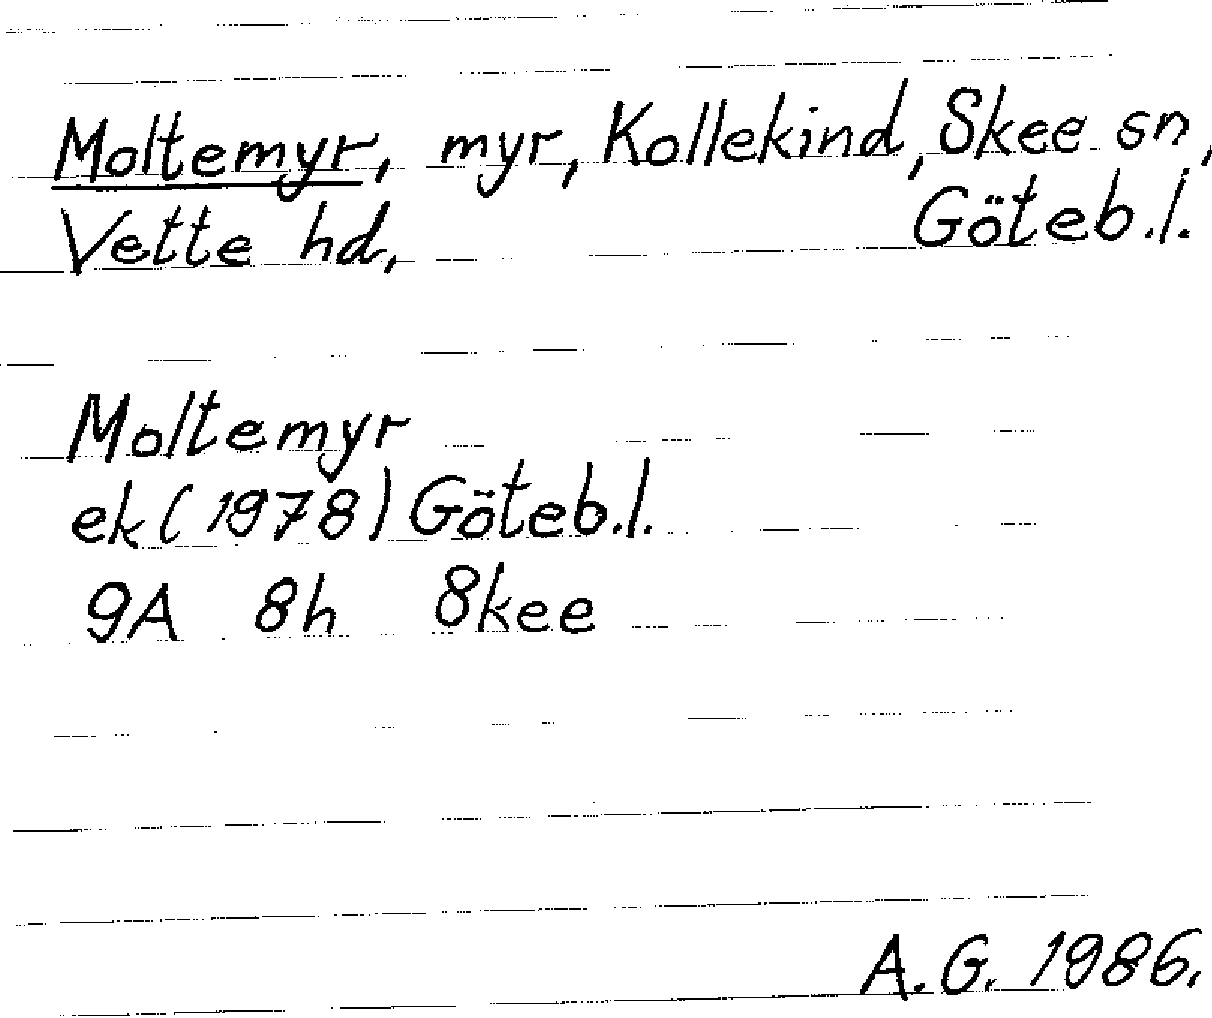 Moltemyr, myr, Kollekind, Skee sn,
Vette hd, Göteb.l.
Moltemyr
ek (1978) Göteb.l.
9A 8h Skee
A.G. 1986.